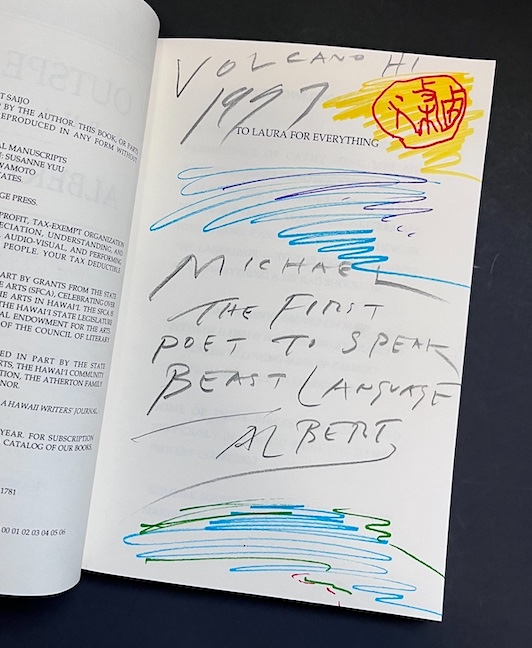 OUTSPE
ALBER
T SAIJO
D BY THE AUTHOR. THIS BOOK, OR PARTS
REPRODUCED IN ANY FORM WITHOUT
AL MANUSCRIPTS
E: SUSANNE YUU
WAMOTO
TATES.
GE PRESS.
PROFIT, TAX-EXEMPT ORGANIZATION
ECIATION, UNDERSTANDING, AND
AUDIO-VISUAL, AND PERFORMING
PEOPLE. YOUR TAX DEDUCTIBLE
ART BY GRANTS FROM THE STATE
E ARTS (SFCA), CELEBRATING OVER
THE ARTS IN HAWAI'I. THE SFCA IS
THE HAWAI'I STATE LEGISLATURE
AL ENDOWMENT FOR THE ARTS
OF THE COUNCIL OF LITERARY
ED IN PART BY THE STATE
ARTS, THE HAWAI'I COMMUNITY
TION, THE ATHERTON FAMILY
NOR.
A HAWAII WRITERS' JOURNAL,
YEAR. FOR SUBSCRIPTION
CATALOG OF OUR BOOKS.
1781
00 01 02 03 04 05 06
VOLCANO HI
1997
TO LAURA FOR EVERYTHING
MICHAEL
THE FIRST
POET TO SPEAK
BEAST LANGUAGE
ALBERT